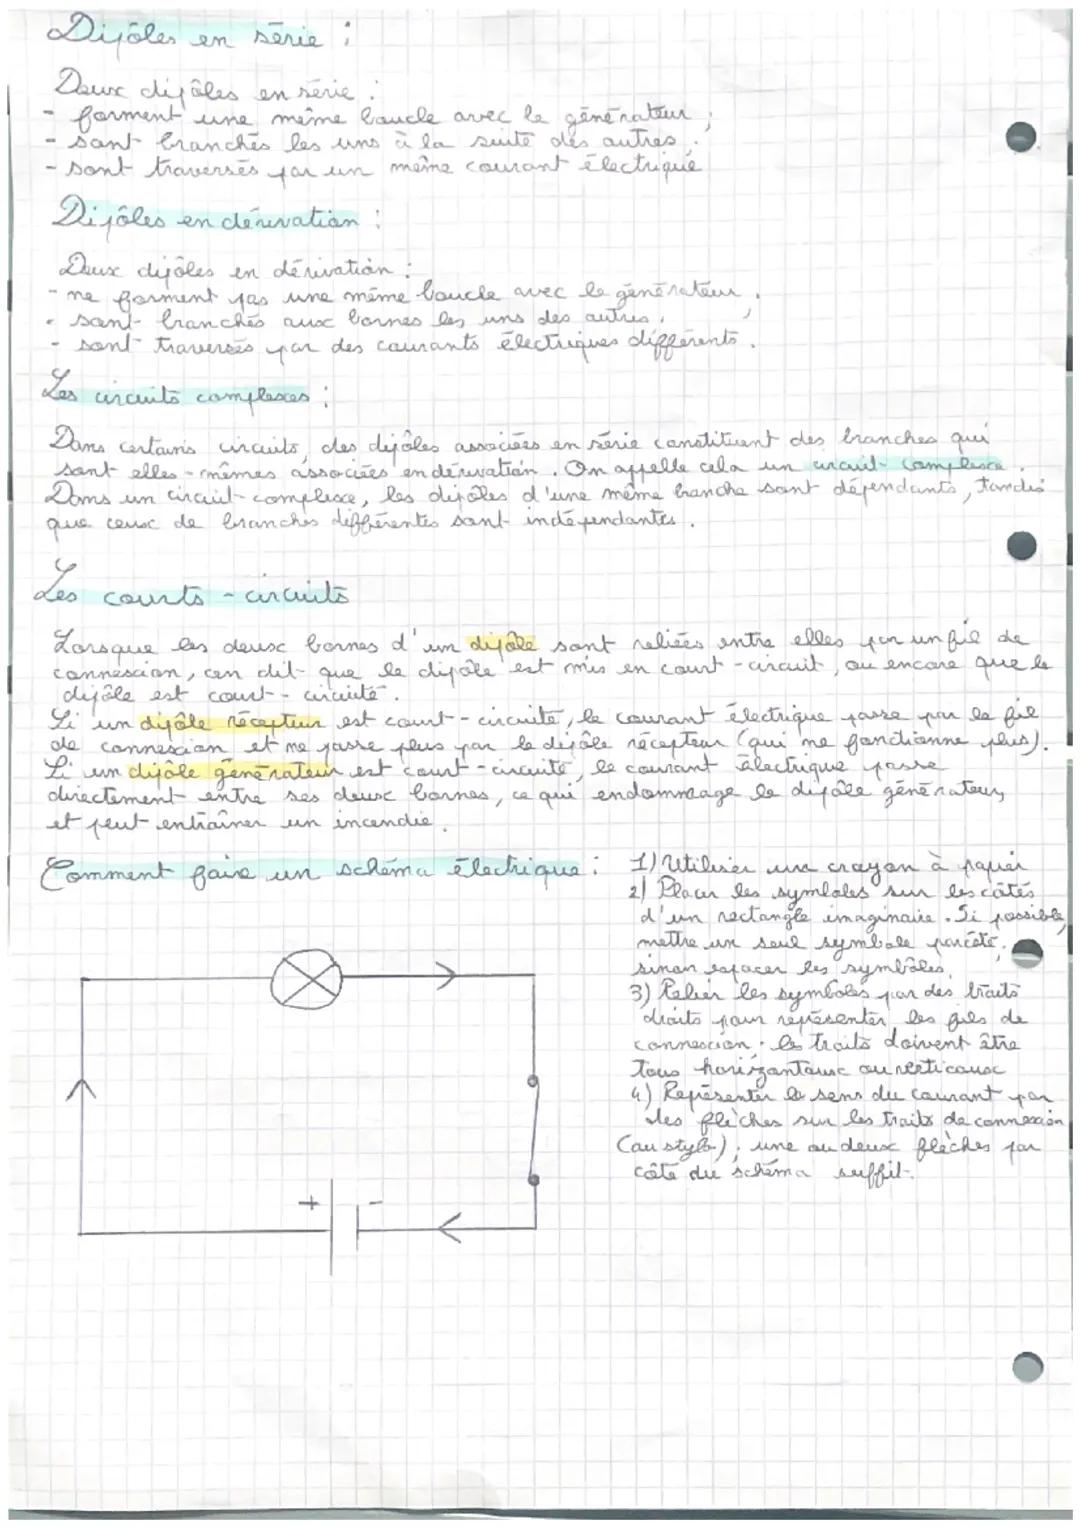 Dipôles en série :
Deux dipôles en série :
- forment une même boucle avec le générateur ;
- sont branchés les uns à la suite des autres ;
- sont traversés par un même courant électrique
Dipôles en dérivation :
Deux dipôles en dérivation :
- ne forment pas une même boucle avec le générateur ;
- sont branchés aux bornes les uns des autres ;
- sont traversés par des courants électriques différents.
Les circuits complexes :
Dans certains circuits, des dipôles associées en série constituent des branches qui
sont elles-mêmes associées en dérivation. On appelle cela un circuit complexe.
Dans un circuit complexe, les dipôles d'une même branche sont dépendants, tandis
que ceux de branches différentes sont indépendantes.
Les courts-circuits
Lorsque les deux bornes d'un dipôle sont reliées entre elles par un fil de
connexion, on dit que le dipôle est mis en court-circuit, ou encore que le
dipôle est court-circuité.
Si un dipôle récepteur est court-circuité, le courant électrique passe par le fil
de connexion et ne passe plus par le dipôle récepteur (qui ne fonctionne plus).
Si un dipôle générateur est court-circuité, le courant électrique passe
directement entre ses deux bornes, ce qui endommage le dipôle générateur,
et peut entraîner un incendie.
Comment faire un schéma électrique :
1) Utiliser un crayon à papier
2) Placer les symboles sur les côtés
d'un rectangle imaginaire. Si possible,
mettre un seul symbole par côté,
sinon espacer les symboles.
3) Relier les symboles par des traits
droits pour représenter les fils de
connexion : les traits doivent être
tous horizontaux ou verticaux
4) Représenter le sens du courant par
des flèches sur les traits de connexion
(au stylo) ; une ou deux flèches par
côté du schéma suffit.
+ -